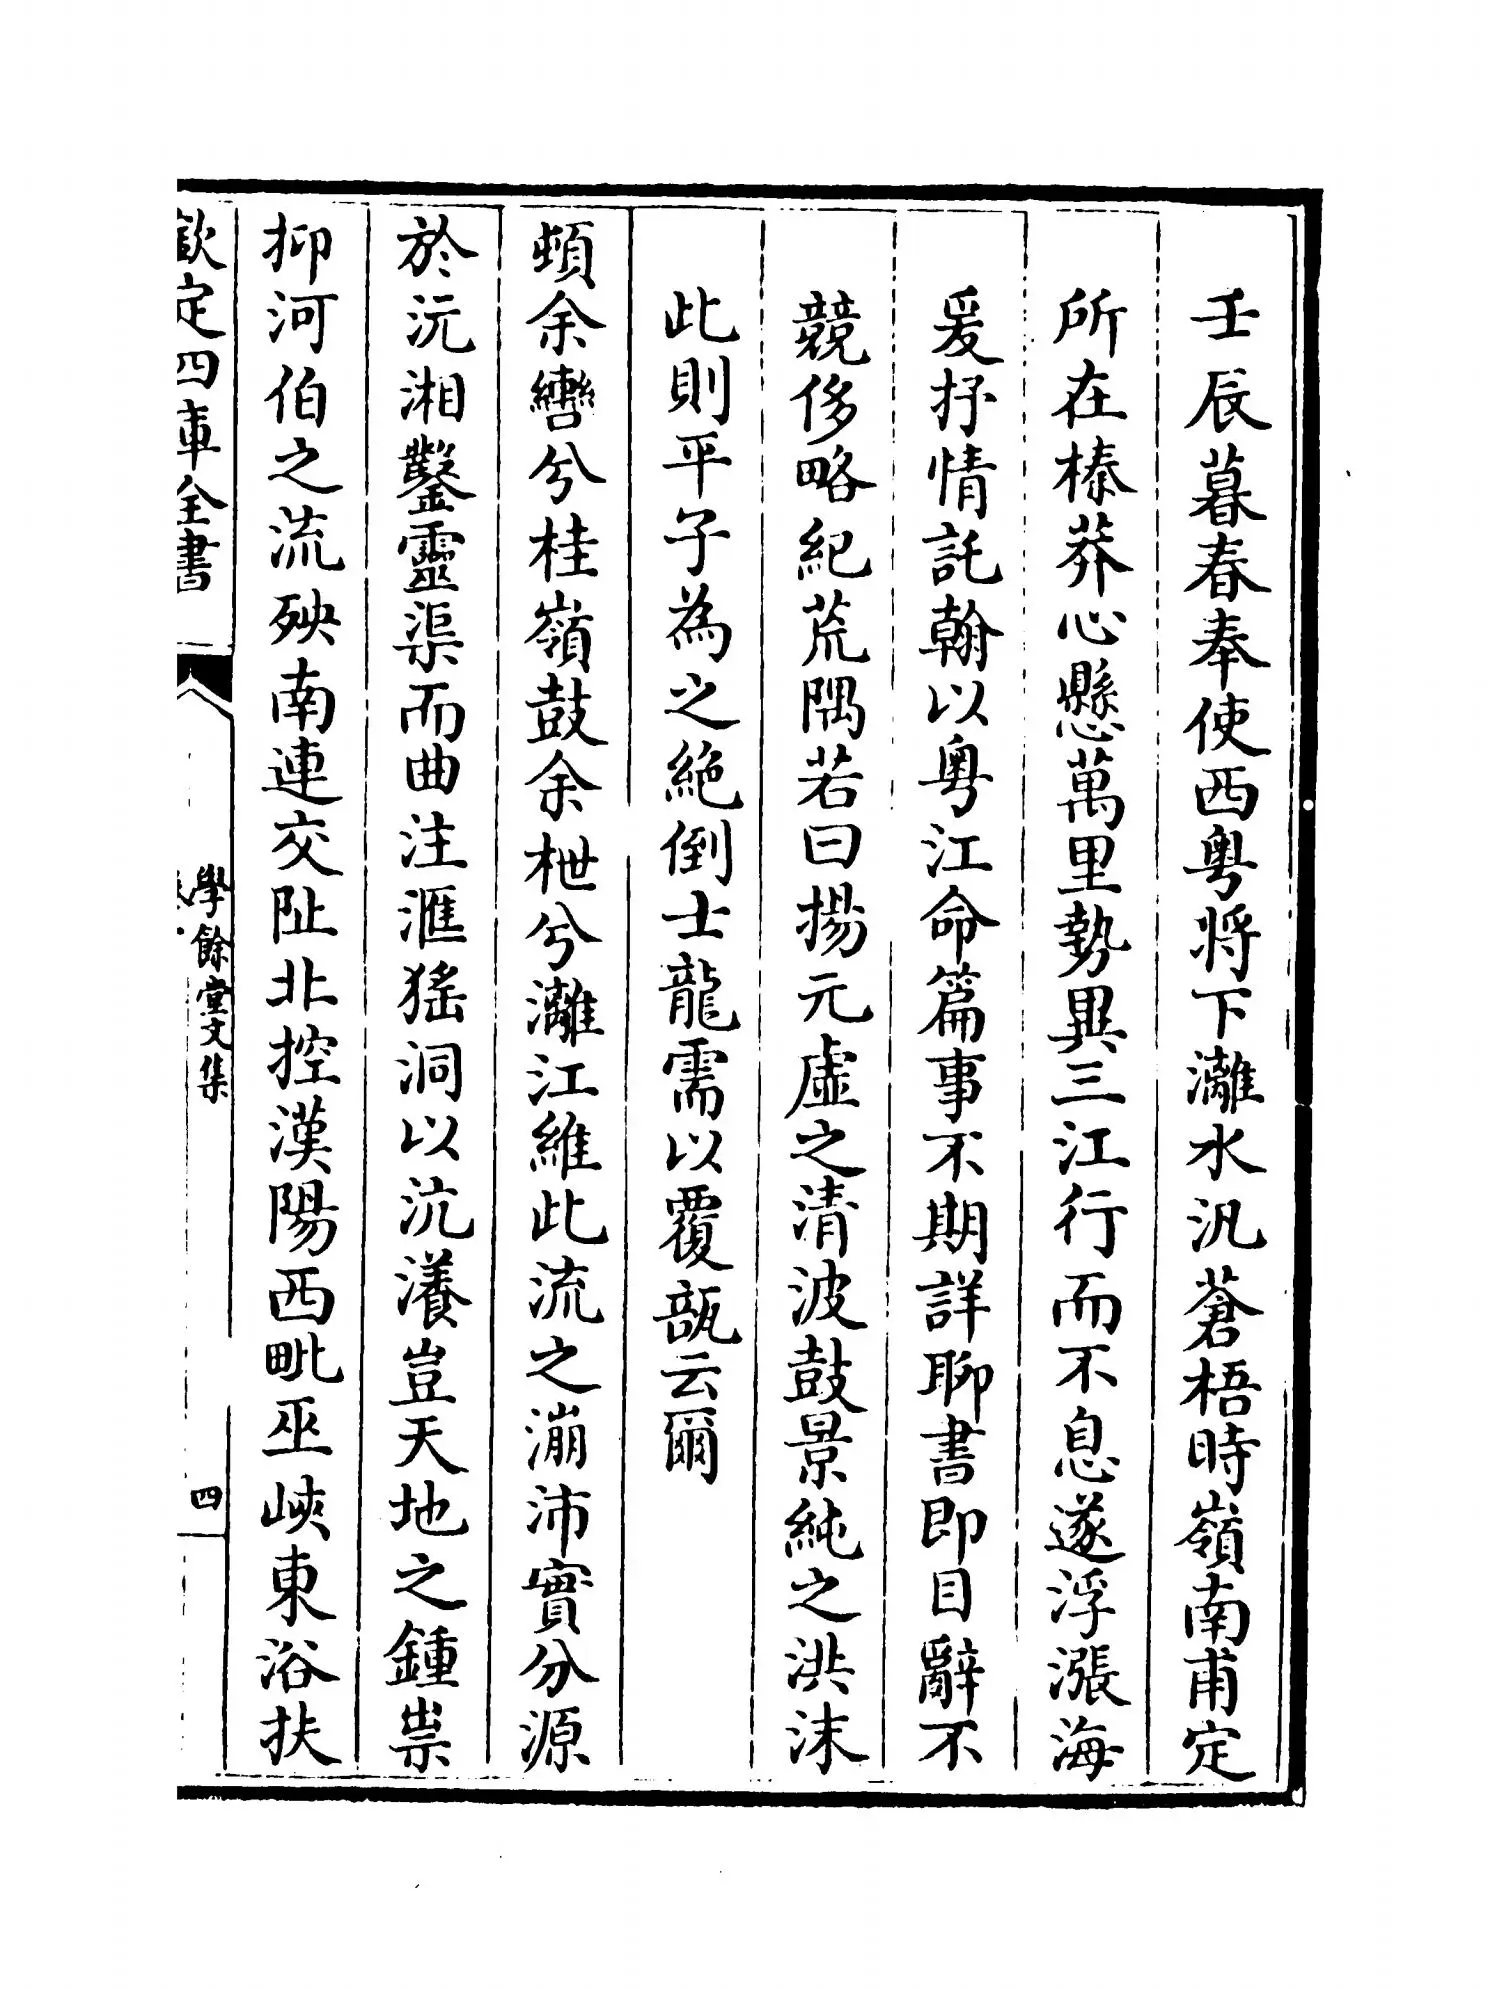 壬辰暮春奉使西粤將下灕水汎蒼梧時嶺南甫定
所在榛莽心懸萬里勢異三江行而不息遂浮漲海
爰抒情託翰以粤江命篇事不期詳聊書即目辭不
競侈略紀荒隅若曰揚元虚之清波鼓景純之洪沫
此則平子為之絶倒士龍需以覆瓿云爾
頓余轡兮桂嶺鼓余枻兮灕江維此流之漰沛實分源
於沅湘鑿靈渠而曲注滙猺洞以沆瀁豈天地之鍾祟
抑河伯之流殃南連交阯北控漢陽西毗巫峽東浴扶
欽定四庫全書
學餘堂文集
四